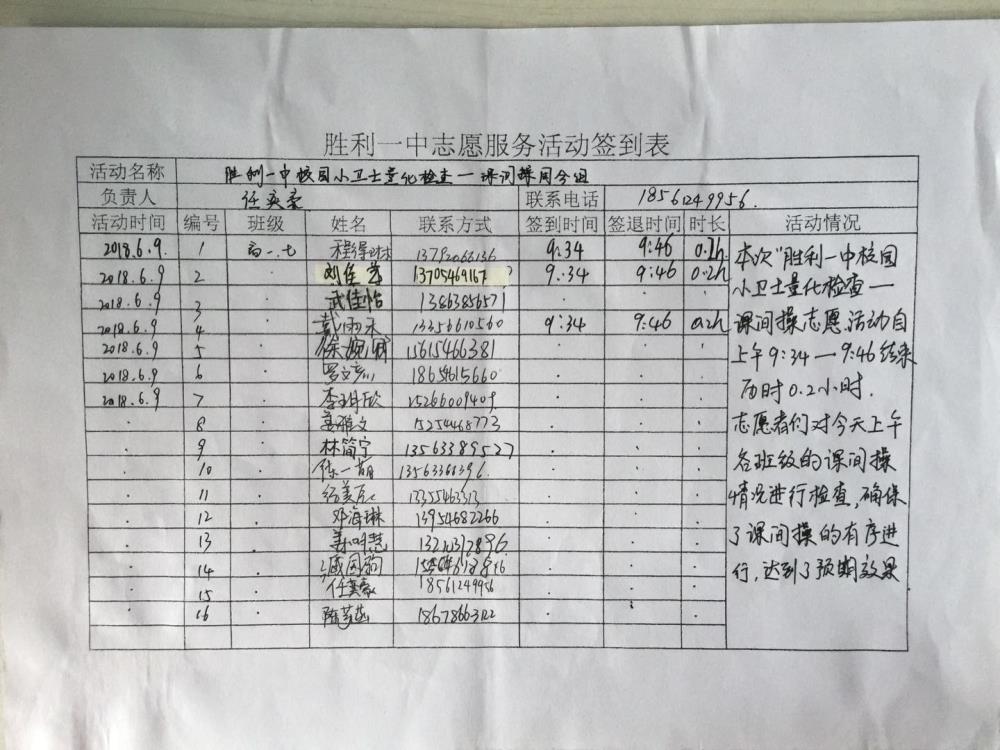 胜利一中志愿服务活动签到表
活动名称 胜利一中校园小卫士量化检查一课间操周令组
负责人 任奕豪 联系电话 18561249956.
活动时间 编号 班级 姓名 联系方式 签到时间 签退时间 时长 活动情况
2018.6.9. 1 高一.七 程得 13792066136 9:34 9:46 0.2h
2018.6.9 2 · 刘佳 13705469167 9:34 9:46 0.2h
2018.6.9 3 · 武佳怡 13863856571 · · ·
2018.6.9 4 · 戴雨禾 13356610560 9:34 9:46 0.2h
2018.6.9 5 · 徐婉 15615466381 · · ·
2018.6.9 6 · 罗文 18654615660 · · ·
2018.6.9 7 · 李 欣 15266009409 · · ·
· 8 · 姜雅文 15254468773 · · ·
· 9 · 林简宁 13563389527 · · ·
· 10 · 一 · · ·
· 11 · · · ·
· 12 · 邓海琳 13954682266 · · ·
· 13 · 慧 · · ·
· 14 · · · ·
· 15 · 任奕豪 18561249956 · · ·
· 16 · 陈 18678663122 · ·
本次“胜利一中校园
小卫士量化检查一
课间操志愿活动自
上午9:34一9:46结束
历时0.2小时.
志愿者们对今天上午
各班级的课间操
情况进行检查,确保
了课间操的有序进
行,达到了预期效果